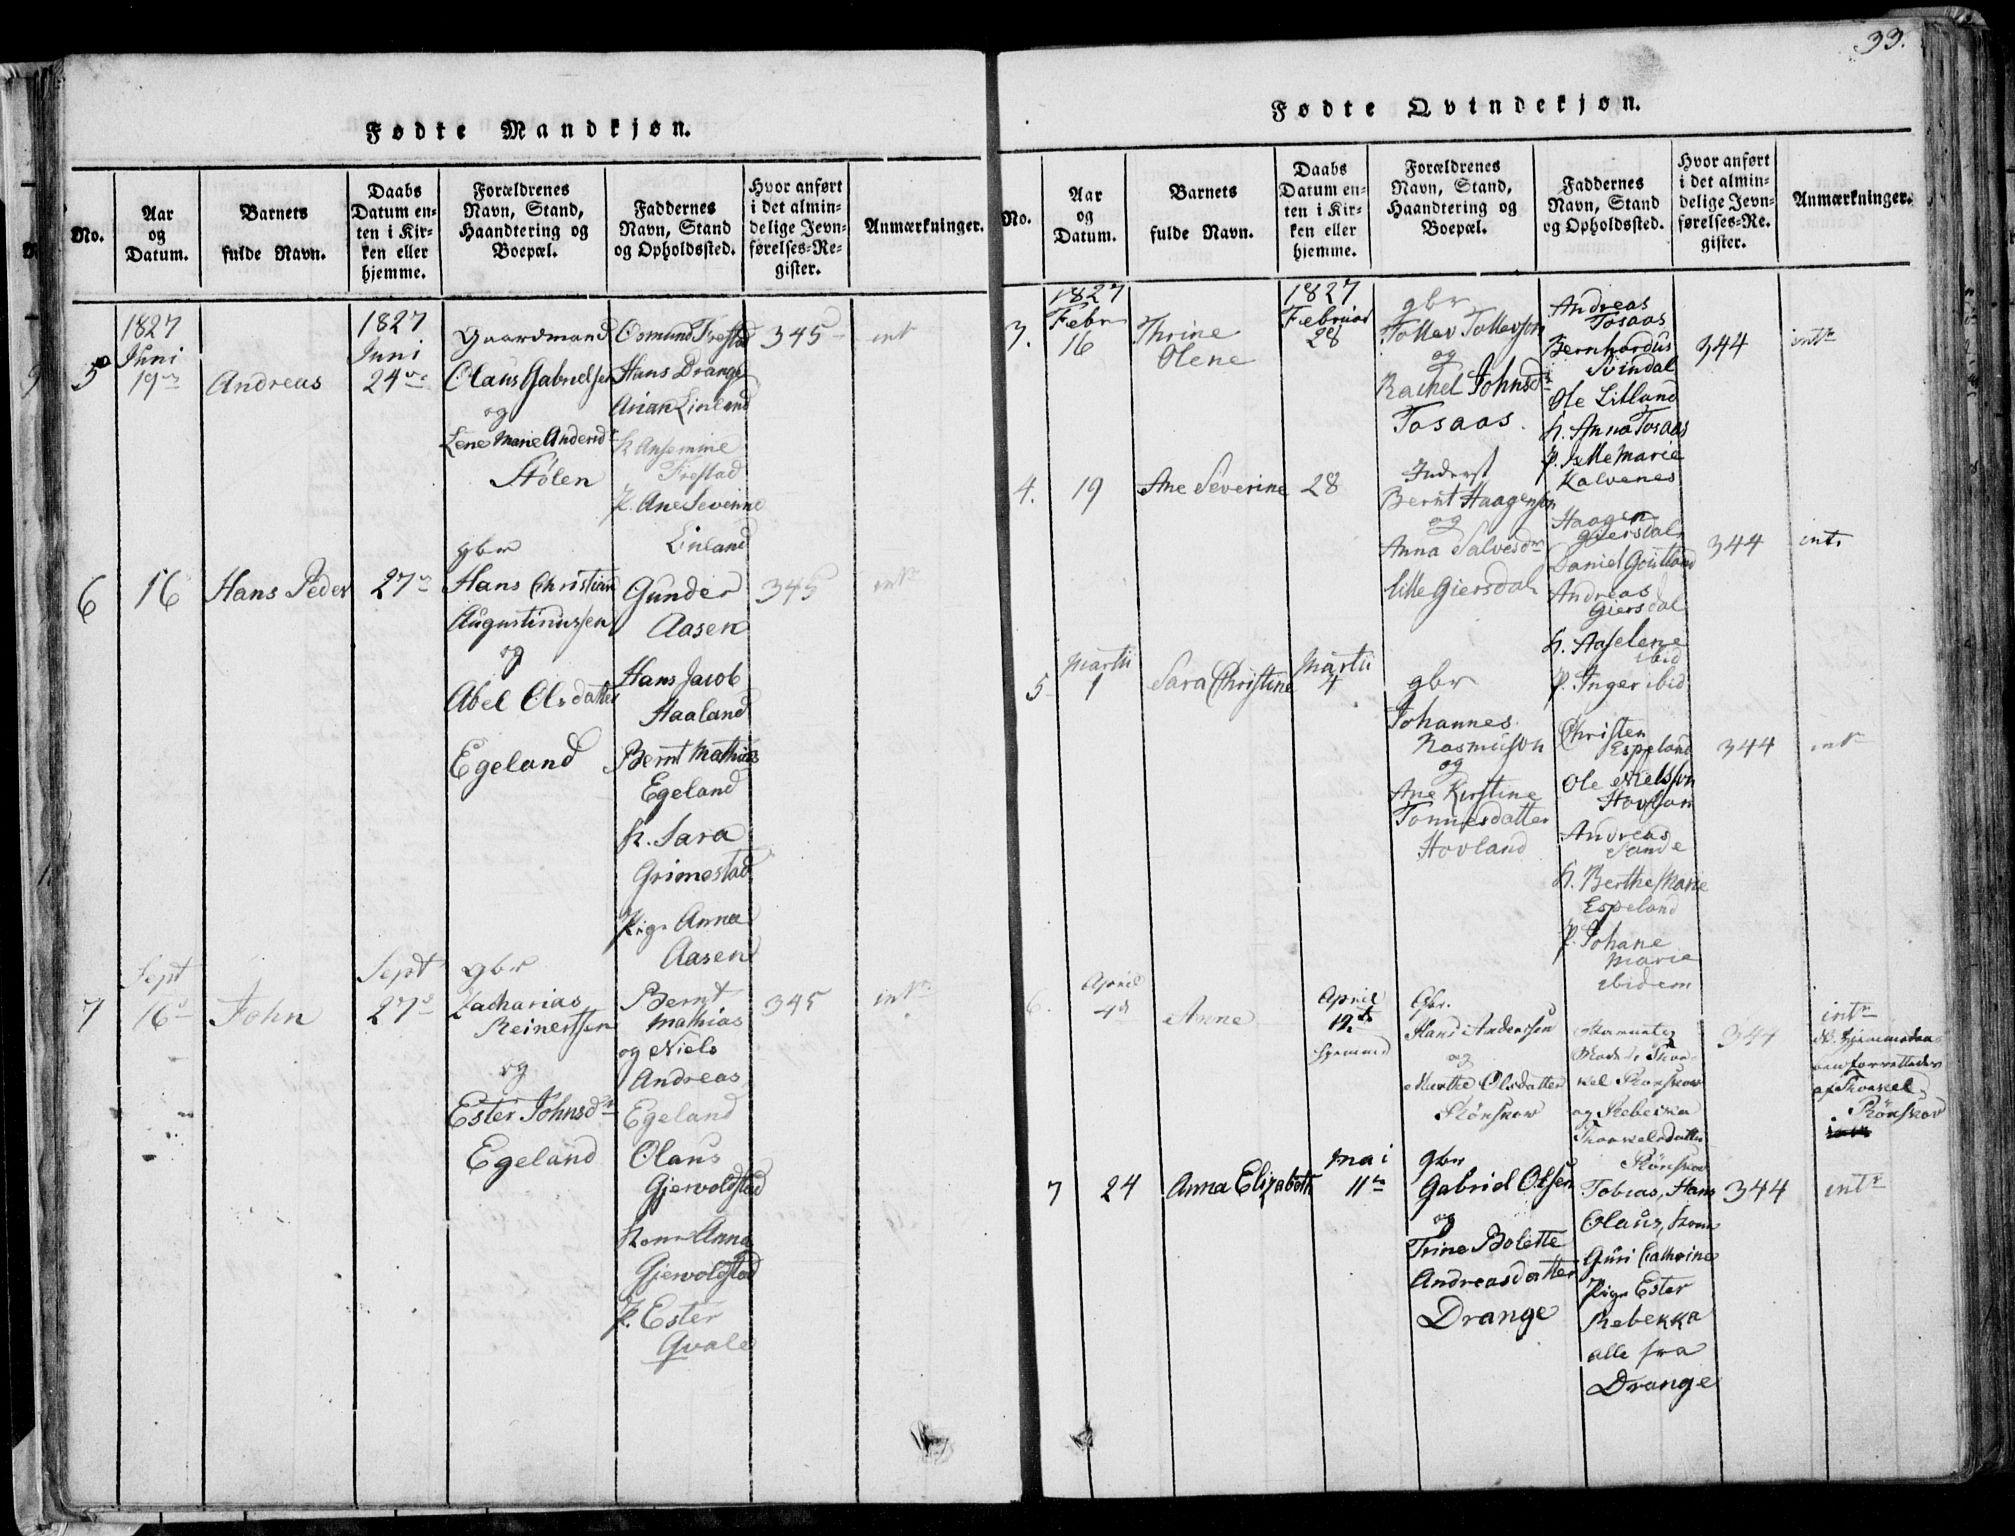 33.
Fødte Mandkjøn.
No.
Aar
og
Datum.
Barnets
fulde Navn.
Daabs
Datum en-
ten i Kir-
ken eller
hjemme.
Forældrenes
Navn, Stand,
Haandtering og
Boepæl.
Faddernes
Navn, Stand
og Opholdssted.
Hvor anført
i det almin-
delige Jevn-
førelses-Re-
gister.
Anmærkninger.
5
1827
Juni
19
Andreas
1827
Juni
24
Gaardmand
Olaus Gabrielsen
og
Lene Marie Andersd
Stølen
Osmund Frestad
Hans Drange
Arian Linland
K Ansemine
Frestad
P. Ane Severine
Linland
345
int
6
16
Hans Peder
27
gbr
Hans Christian
Augustinussen
og
Abel Olsdatter
Egeland
Gunder
Aasen
Hans Jacob
Haaland
Bernt Mathias
Egeland
K. Sara
Grimestad
Pige Anna
Aasen
345
int
7
Sept
16
John
Sept
27
gbr
Zacharias
Reinertsen
og
Ester Johnsd
Egeland
Bernt
Mathias
og Niels
Andreas
Egeland
Olaus
Gjervoldstad
Kone Anna
Gjervoldstad
P. Ester
Qvale
345
int
Fødte Qvindekjøn.
No.
Aar
og
Datum.
Barnets
fulde Navn.
Daabs
Datum en-
ten i Kir-
ken eller
hjemme.
Forældrenes
Navn, Stand,
Haandtering og
Boepæl.
Faddernes
Navn, Stand
og Opholdssted.
Hvor anført
i det almin-
delige Jevn-
førelses-Re-
gister.
Anmærkninger.
3.
1827
Febr
16
Thrine
Olene
1827
Februar
28
gbr
Tollev Tollevson
og
Rachel Johnsd
Tosaas.
Andreas
Tosaas
Bernhardus
Svindal
Ole Litland
K. Anna Tosaas
P. Jelle Marie
Kalvenes
344
int
4.
19
Ane Severine
28
Inderst
Bernt Haagenson
og
Anna Salvesd
Lille Giersdal
Haagen
Giersdal
Daniel
Andreas
Giersdal
K. Aaselene
ibid
P. Inger ibid
344
int.
5
Martii
1
Sara Christine
Martii
4
gbr
Johannes
Rasmuson
og
Ane Kirstine
Tønnesdatter
Hovland
Christen
Espeland
Ole Nielsson
Andreas
Sande
K. Berthe Marie
Espeland
P. Johane
Marie
ibidem
344
int
6.
April
4
Anne
April
12
hjemmed
Gbr.
Hans Anderssen
og
Marthe Olsdatter
Rönskov
Rönskov
og Rebekka
Rönskov
344
int
Rönskov
7
24
Anna Elizabeth
Mai
11
gbr
Gabriel Olsen
og
Trine Bolette
Andreasdatter
Drange
Tobias, Hans
Olaus, Kone
Guri Cathrine
Pige Ester
Rebekka
alle fra
Drange
344
int